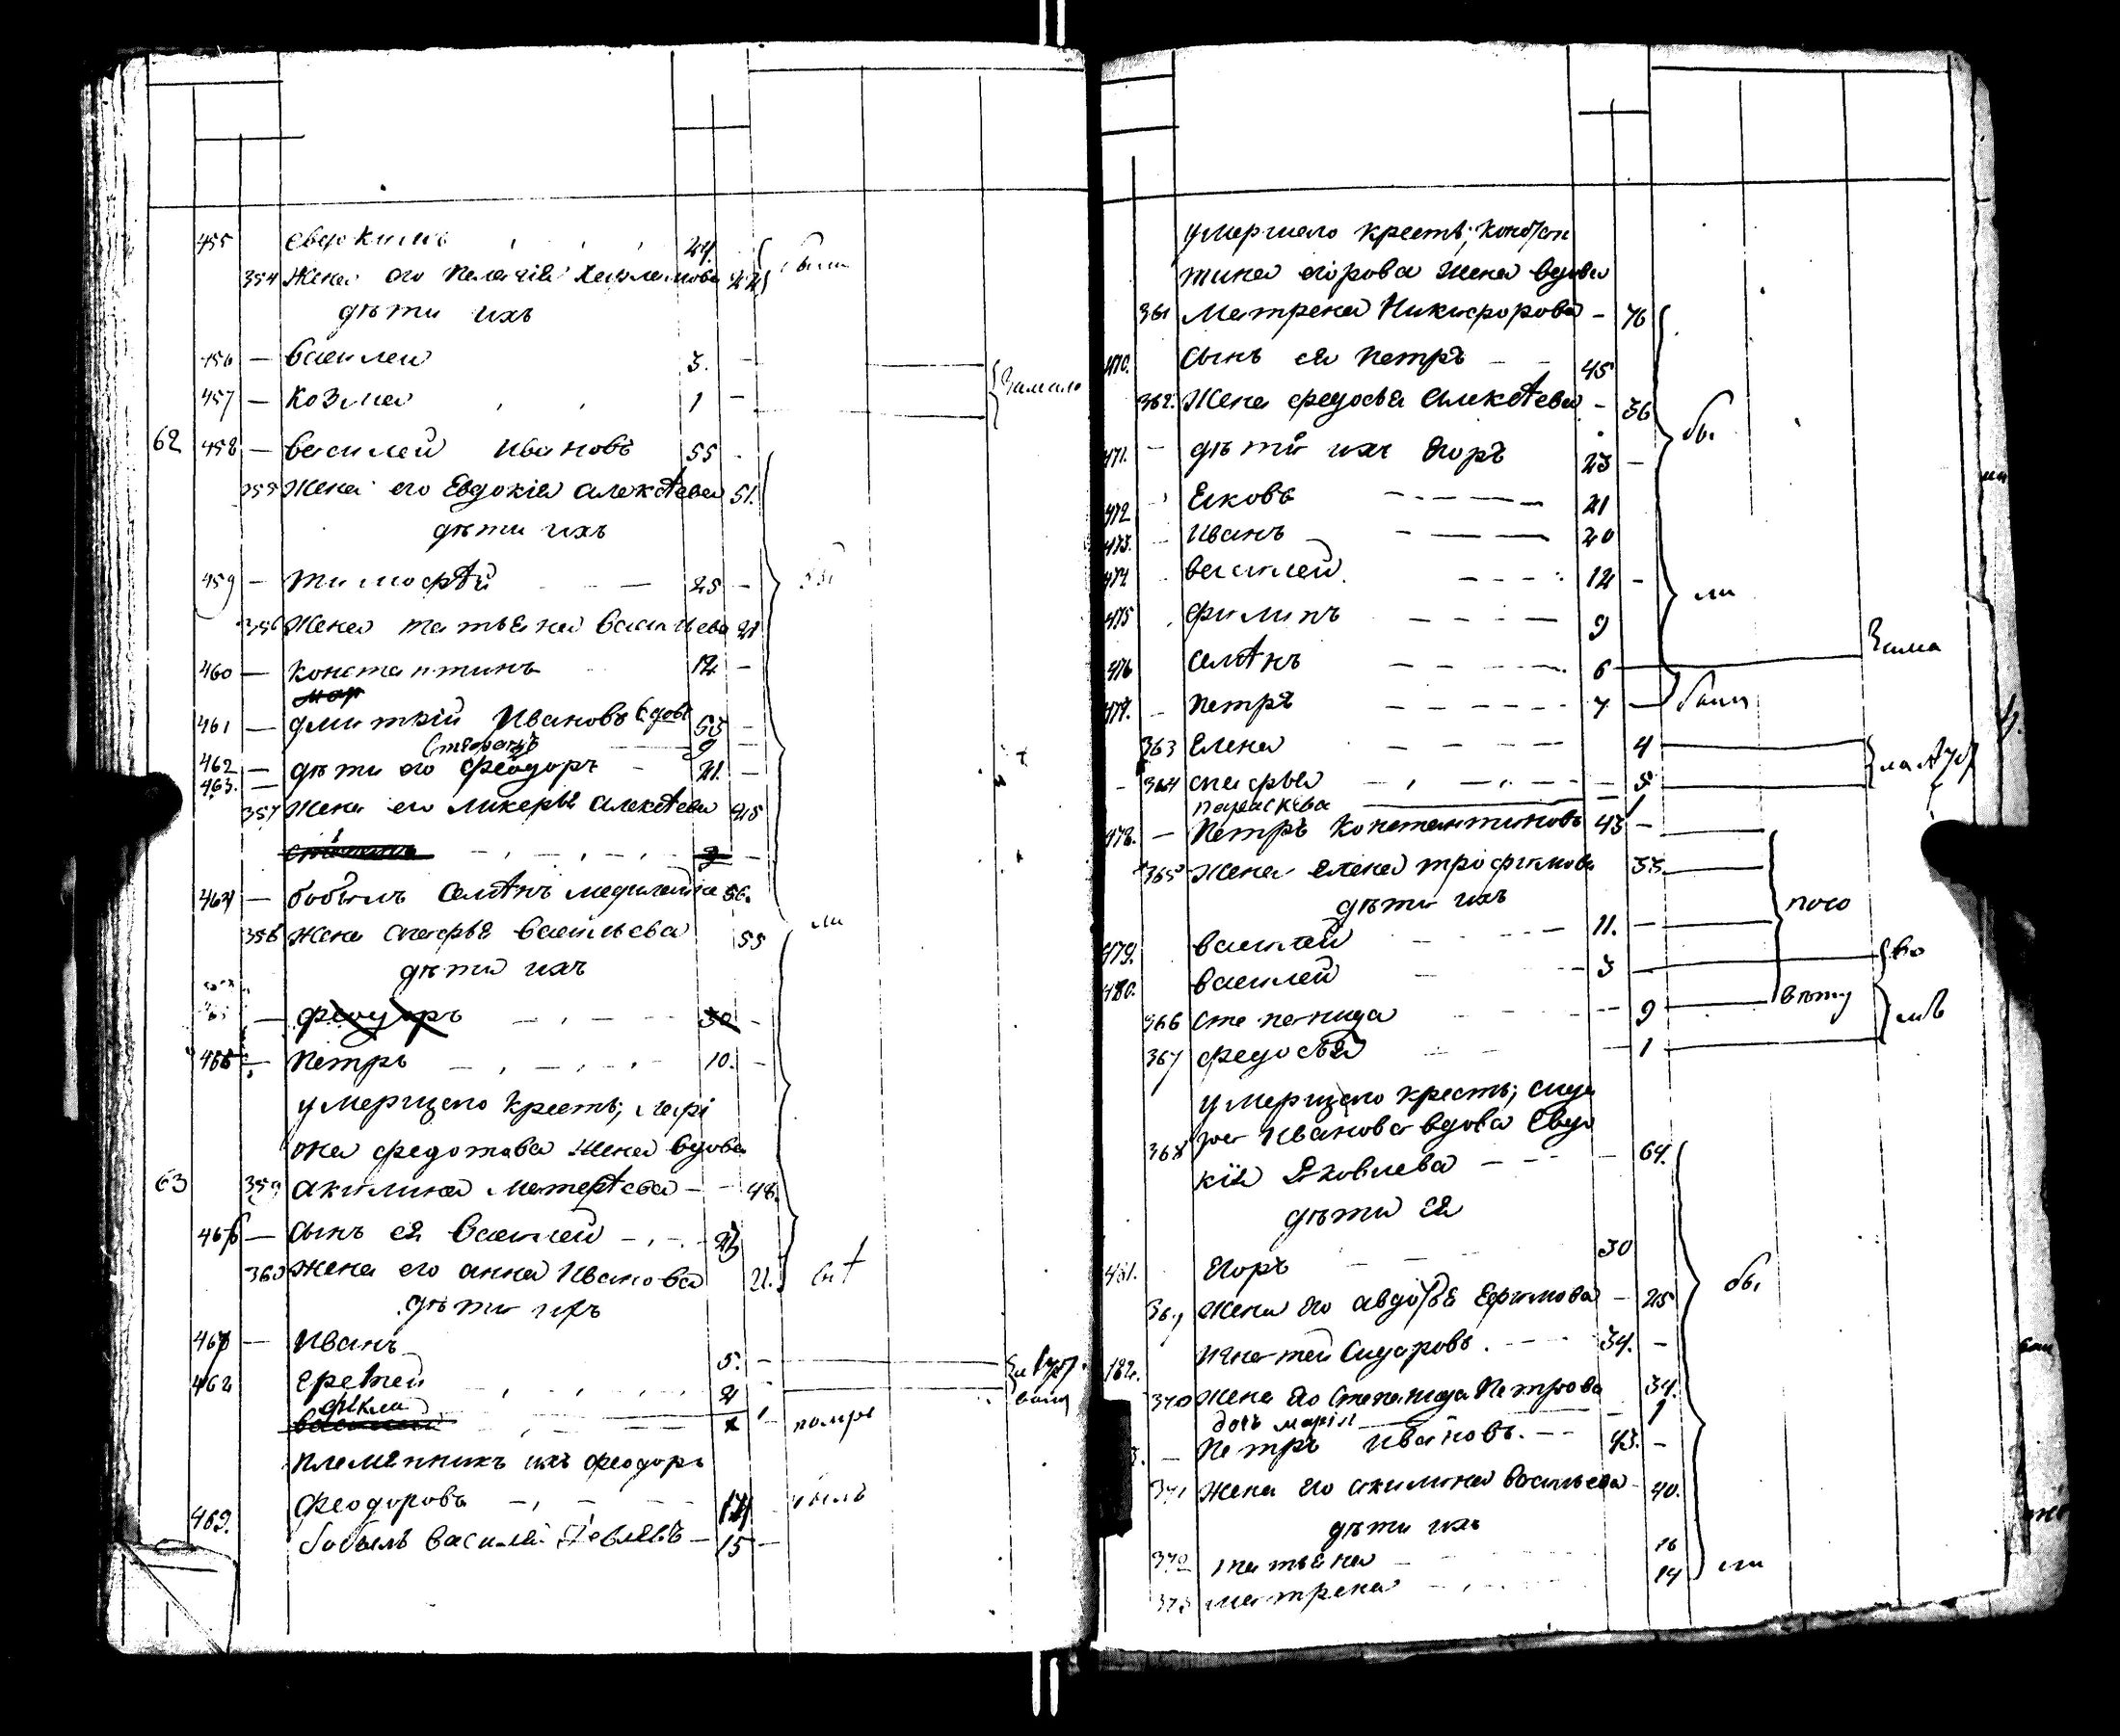 455 Евдокимъ 24.
354 Жена его Пелагия Харламова 22 были
дѣти ихъ
456 — Василей 3. —
457 — Козма 1 — Замало
62 458 — Василей Ивановъ 55
355 Жена его Евдокия Алексѣева 51.
дѣти ихъ
459 — Тимофѣй — 25 — бы
356 Жена Татьяна Васильева 21
460 — Константинъ 12 —
461 — Дмитрий Ивановъ вдовъ 53 —
Степанъ 9 —
462 — дѣти его Феодоръ 21. —
463. —
357 Жена его Ликерья Алексѣева 25
464 — бобыль Семѣнъ 56.
358 Жена Агафья Васильева 55 ли
дѣти ихъ
— Феодоръ 30 —
465 — Петръ 10. —
умершаго крестъ;
она Федотова жена вдова
63 359 Акилина Матвѣева — 48.
466 — сынъ ея Василей 23
360 Жена его Анна Иванова 21.
дѣти ихъ
467 — Иванъ 5. —
468 Ерѣмей 2
Фекла 1 помре
племянникъ ихъ Феодоръ
469. Феодоровъ 17 былъ
бобыль Василей 15 —
умершаго крестъ; Констан
тина Егорова жена вдова
361 Матрена Никифорова — 76
470. Сынъ ея Петръ 45
362. Жена Федосья Алексѣева — 36 бы
471. — дѣти ихъ Егоръ 23 —
472 Яковъ 21
473. Иванъ 20
474 Василей 12 — ли
475 Филипъ 9
476 Семѣнъ 6 Зама
477. — Петръ 7 — были
363 Елена 4
364 Агафья 5
Параскева 1
478. — Петръ Константиновъ 43 —
365 Жена Елена Трофимова 33.
дѣти ихъ посо
479. Василей 11. —
480. Василей 3
366 Степанида 9 вѣту
367 Федосья 1
умершаго крестъ; Сидо
ра Иванова вдова Евдо
368 кия Яковлева 64.
дѣти ея
481. Егоръ 30
369 Жена его Авдотья Ефимова — 25 бы
482. Игнатей Сидоровъ. 34. —
370 Жена его Степанида Петрова 34.
дочь Мария 1
3. — Петръ Ивановъ. 43. —
371 Жена его Акилина Васильева 40.
дѣти ихъ
372 Татьяна 16
373 Матрена 14 ли